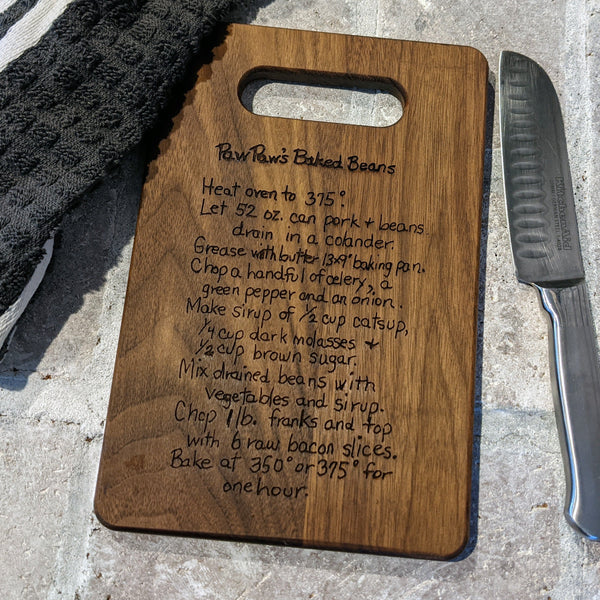 PawPaw's Baked Beans
Heat oven to 375°.
Let 52 oz. can pork + beans
drain in a colander.
Grease with butter 13x9" baking pan.
Chop a handful of celery, a
green pepper and an onion.
Make sirup of 1/2 cup catsup,
1/4 cup dark molasses +
1/2 cup brown sugar.
Mix drained beans with
vegetables and sirup.
Chop 1 lb. franks and top
with 6 raw bacon slices.
Bake at 350° or 375° for
one hour.